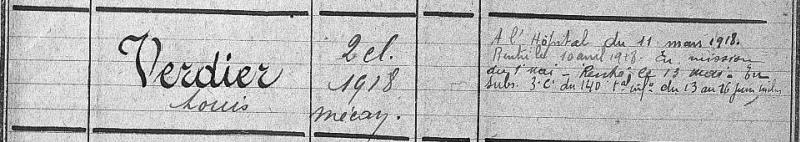 Verdier
Louis
2 cl.
1918
mécan.
A l'Hôpital du 11 mars 1918.
Rentré le 10 avril 1918. En mission
du 1 mai - Rentré le 13 mai. En
subs. 3e Cie du 140 t al infie du 13 au 26 juin inclus